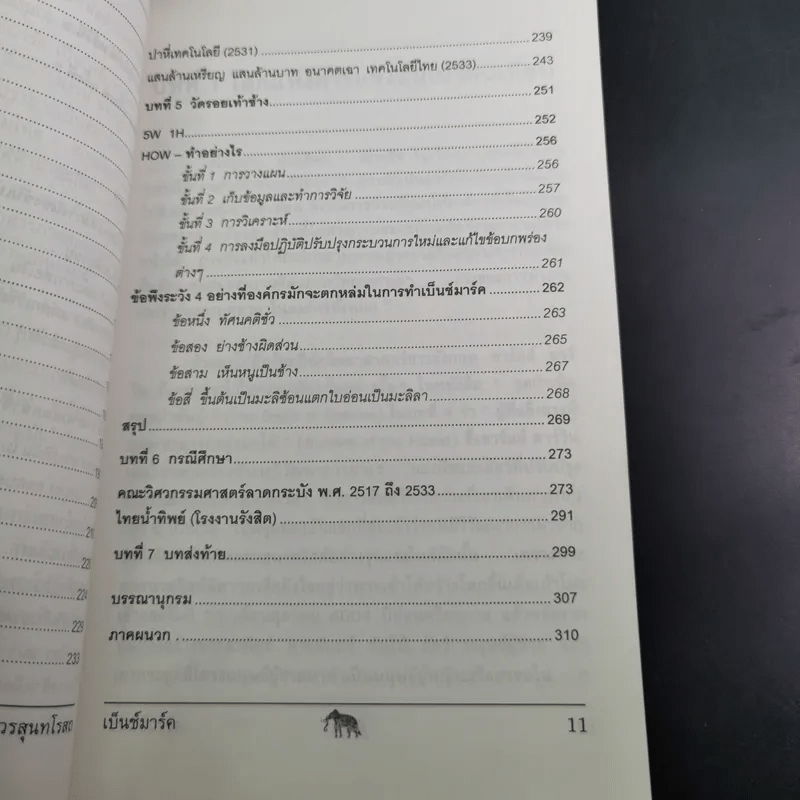 ปาหี่เทคโนโลยี (2531) 239
แสนล้านเหรียญ แสนล้านบาท อนาคตเฉา เทคโนโลยีไทย (2533) 243
บทที่ 5 วัดรอยเท้าช้าง 251
5W 1H 252
HOW – ทำอย่างไร 256
ขั้นที่ 1 การวางแผน 256
ขั้นที่ 2 เก็บข้อมูลและทำการวิจัย 257
ขั้นที่ 3 การวิเคราะห์ 260
ขั้นที่ 4 การลงมือปฏิบัติปรับปรุงกระบวนการใหม่และแก้ไขข้อบกพร่อง
ต่างๆ 261
ข้อพึงระวัง 4 อย่างที่องค์กรมักจะตกหล่มในการทำเบ็นช์มาร์ค 262
ข้อหนึ่ง ทัศนคติชั่ว 263
ข้อสอง ย่างช้างผิดส่วน 265
ข้อสาม เห็นหนูเป็นช้าง 267
ข้อสี่ ขึ้นต้นเป็นมะลิซ้อนแตกใบอ่อนเป็นมะลิลา 268
สรุป 269
บทที่ 6 กรณีศึกษา 273
คณะวิศวกรรมศาสตร์ลาดกระบัง พ.ศ. 2517 ถึง 2533 273
ไทยน้ำทิพย์ (โรงงานรังสิต) 291
บทที่ 7 บทส่งท้าย 299
บรรณานุกรม 307
ภาคผนวก 310
เบ็นช์มาร์ค 11
229
233